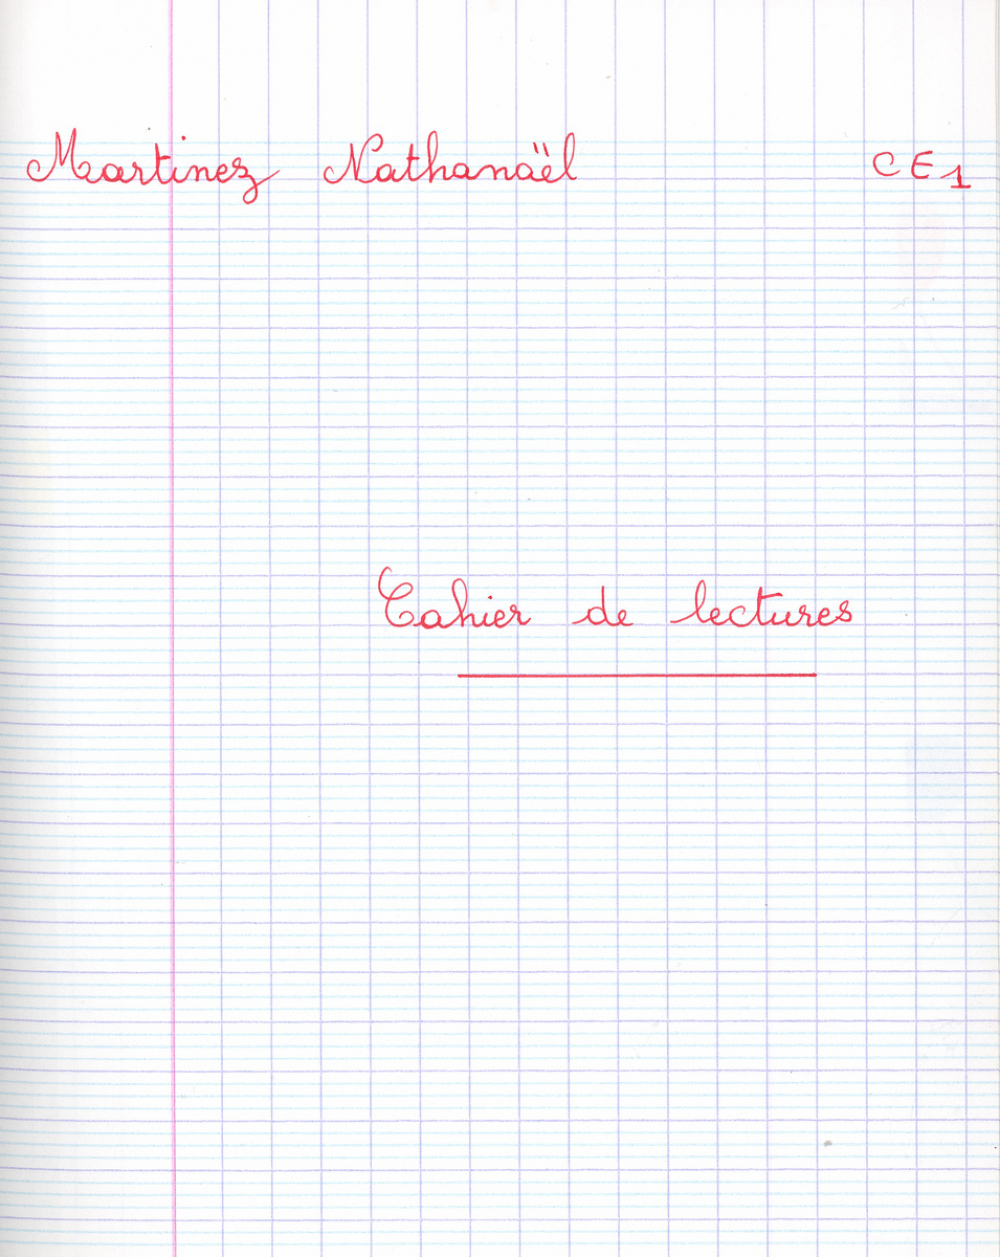 Martinez Nathanaël CE1
Cahier de lectures